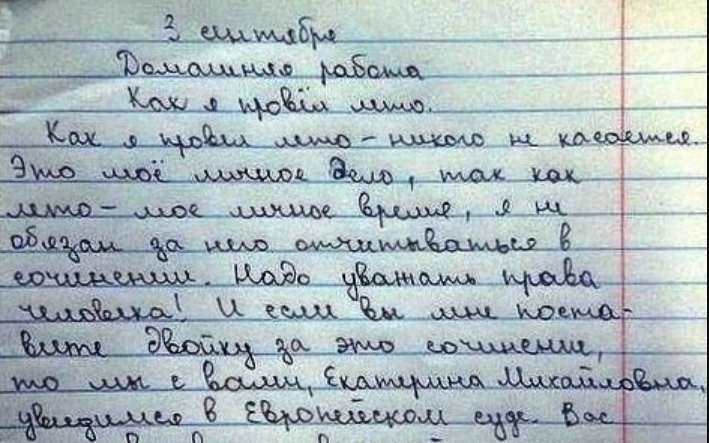 3 сентября
Домашняя работа
Как я провёл лето.
Как я провел лето - никого не касается.
Это моё личное дело, так как
лето - мое личное время, я не
обязан за него отчитываться в
сочинении. Надо уважать права
человека! И если вы мне поста-
вите двойку за это сочинение,
то мы с вами, Екатерина Михайловна,
увидимся в Европейском суде. Вас